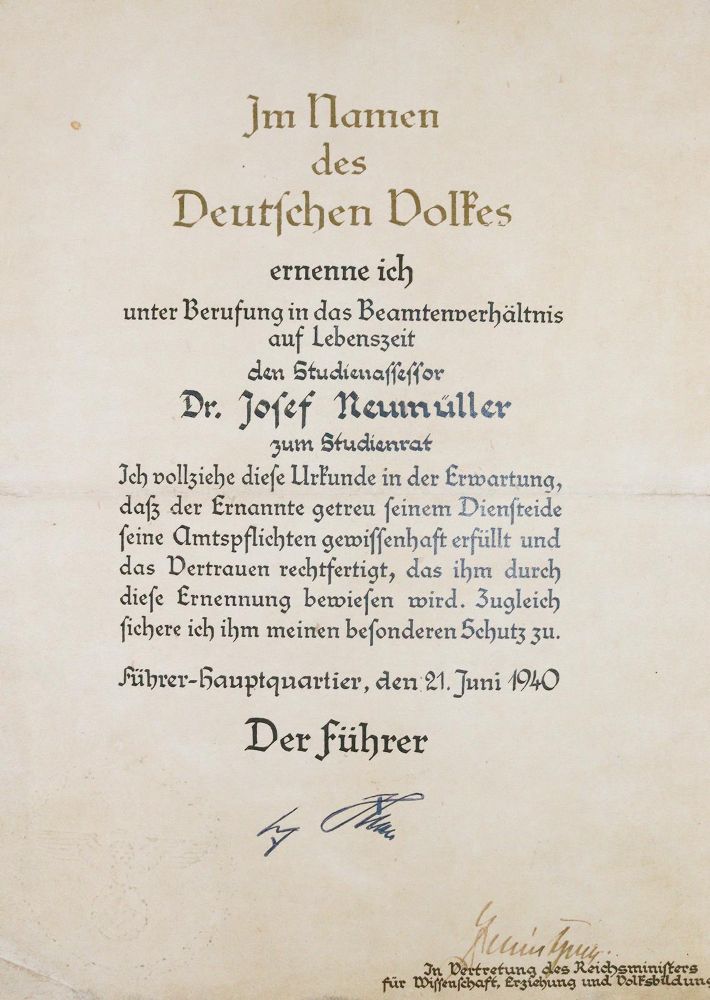 Im Namen
des
Deutschen Volkes
ernenne ich
unter Berufung in das Beamtenverhältnis
auf Lebenszeit
den Studienassessor
Dr. Josef Neumüller
zum Studienrat
Ich vollziehe diese Urkunde in der Erwartung,
daß der Ernannte getreu seinem Diensteide
seine Amtspflichten gewissenhaft erfüllt und
das Vertrauen rechtfertigt, das ihm durch
diese Ernennung bewiesen wird. Zugleich
sichere ich ihm meinen besonderen Schutz zu.
Führer-Hauptquartier, den 21. Juni 1940
Der Führer
In Vertretung des Reichsministers
für Wissenschaft, Erziehung und Volksbildung